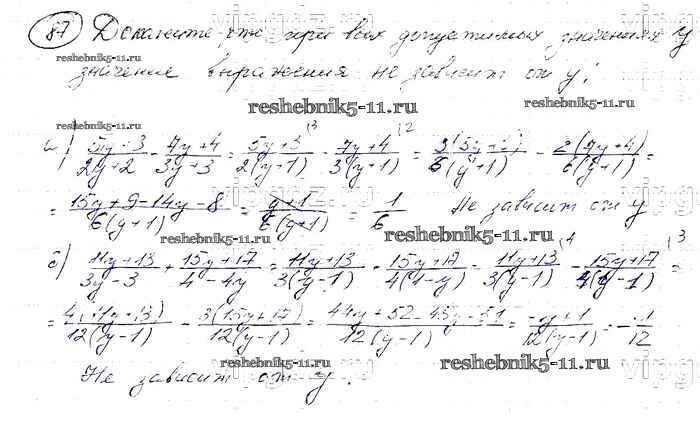 87) Докажите, что при всех допустимых значениях y
значение выражения не зависит от y:
а) (5y+3)/(2y+2) - (7y+4)/(3y+3) = (5y+3)/(2(y+1)) \3 - (7y+4)/(3(y+1)) \2 = 3(5y+3)/(6(y+1)) - 2(7y+4)/(6(y+1)) =
= (15y+9-14y-8)/(6(y+1)) = (y+1)/(6(y+1)) = 1/6 Не зависит от y
б) (11y+13)/(3y-3) + (15y+17)/(4-4y) = (11y+13)/(3(y-1)) + (15y+17)/(4(1-y)) = (11y+13)/(3(y-1)) \4 - (15y+17)/(4(y-1)) \3 =
= 4(11y+13)/(12(y-1)) - 3(15y+17)/(12(y-1)) = (44y+52-45y-51)/(12(y-1)) = (-y+1)/(12(y-1)) = -1/12
Не зависит от y.
reshebnik5-11.ru
reshebnik5-11.ru
reshebnik5-11.ru
reshebnik5-11.ru
reshebnik5-11.ru
reshebnik5-11.ru
reshebnik5-11.ru
reshebnik5-11.ru